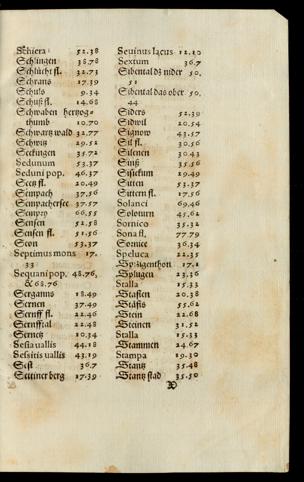 Schiera 52.38
Schlingen 38.78
Schlücht fl. 32.73
Schrans 17.39
Schuls 9.34
Schuß fl. 14.68
Schwaben hertzog=
thumb 10.70
Schwartzwald 32.77
Schwitz 29.52
Seckingen 35.72
Sedunum 53.37
Seduni pop. 46.37
Seetz fl. 20.49
Sempach 37.56
Sempachersee 37.57
Sempey 66.55
Sensen 52.58
Sensen fl. 51.56
Seon 53.37
Septimus mons 17.
33
Sequani pop. 48.76,
& 68.76
Serganns 18.49
Sernen 37.49
Sernff fl. 22.46
Sernfftal 22.48
Sernetz 10.34
Sesia uallis 44.18
Sessitis uallis 43.19
Sest 36.7
Settiner berg 17.39
Seuinus lacus 12.10
Sextum 36.7
Sibental dz nider 50.
51
Sibental das ober 50.
44
Siders 52.39
Sidwil 20.54
Signow 43.57
Sil fl. 30.56
Silenen 30.43
Sins 35.56
Sitten 53.37
Sitten fl. 17.56
Solanci 69.46
Soloturn 45.62
Sornico 35.32
Sona fl. 77.79
Speluca 22.35
Splugen 23.36
Stalla 15.33
Staffen 20.38
Stäfis 55.62
Stein 22.68
Steinen 31.52
Stalla 15.33
Stammen 24.67
Stampa 19.30
Stantz 35.48
Stantz stad 35.50